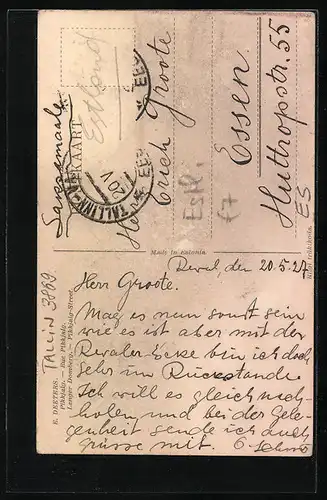 Saksamaale
Estland
KAART
TALLINN
20 V
EESTI
Herrn
Erich Groote
Essen
Huttropstr. 55
Estl.
£7
ES
Made in Estonia
TALLIN 3869
R. DEETERS.
Pikkjalg. — Rue Pikkjalg.
Langer Domberg. — Pikkjalg-Street
Reval, den 20.5.27
Herr Groote.
Mag es nun sonst sein
wie es ist aber mit der
Revaler Ecke bin ich doch
sehr im Rückstande
Ich will es gleich nach-
holen und bei der Gele-
genheit sende ich auch
grüsse mit.